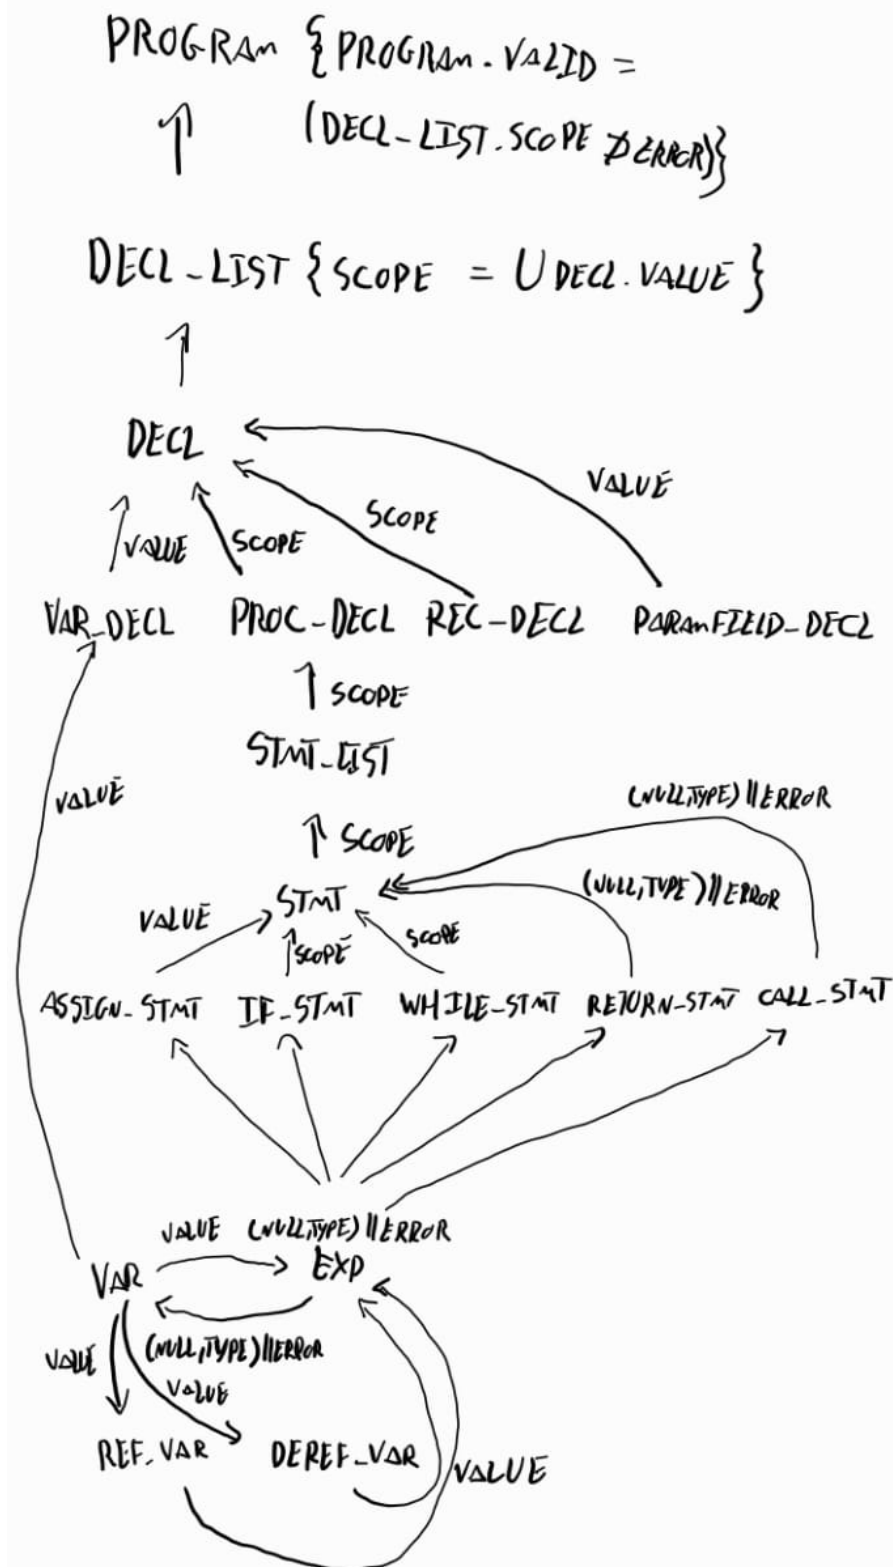 PROGRAM { PROGRAM.VALID =
(DECL_LIST.SCOPE ∌ ERROR)}
DECL_LIST { SCOPE = U DECL.VALUE }
DECL
VALUE
SCOPE
VALUE
SCOPE
VAR_DECL PROC-DECL REC-DECL PARAMFIELD-DECL
SCOPE
STMT_LIST
VALUE
(NULL,TYPE) || ERROR
SCOPE
(NULL,TYPE) || ERROR
STMT
VALUE
SCOPE
SCOPE
ASSIGN_STMT IF_STMT WHILE_STMT RETURN_STMT CALL_STMT
VALUE (NULL,TYPE) || ERROR
VAR EXP
VALUE (NULL,TYPE) || ERROR
VALUE
REF_VAR DEREF_VAR VALUE